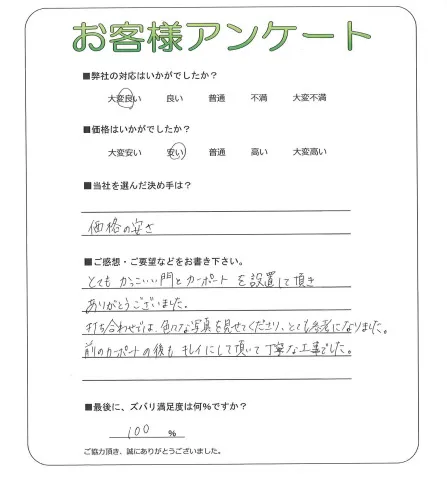 お客様アンケート
■弊社の対応はいかがでしたか？
大変良い 良い 普通 不満 大変不満
■価格はいかがでしたか？
大変安い 安い 普通 高い 大変高い
■当社を選んだ決め手は？
価格の安さ
■ご感想・ご要望などをお書き下さい。
とても かっこいい門とカーポート を設置して頂き
ありがとうございました。
打ち合わせでは、色々な写真を見せてくださり、とても参考になりました。
前のカーポートの後も キレイにして頂いて 丁寧な工事でした。
■最後に、ズバリ満足度は何%ですか？
100 %
ご協力頂き、誠にありがとうございました。